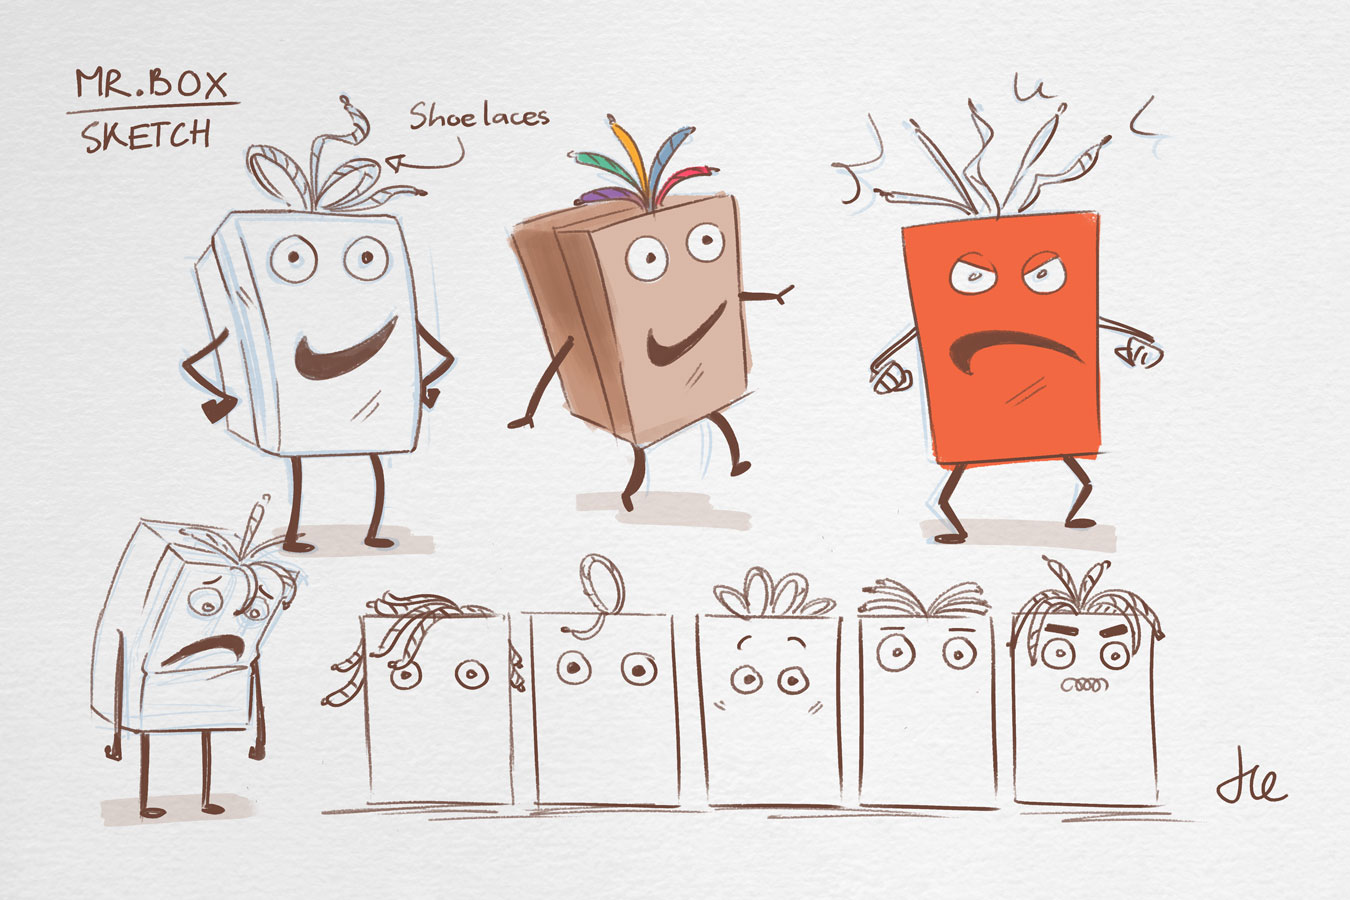 MR. BOX
SKETCH
Shoelaces